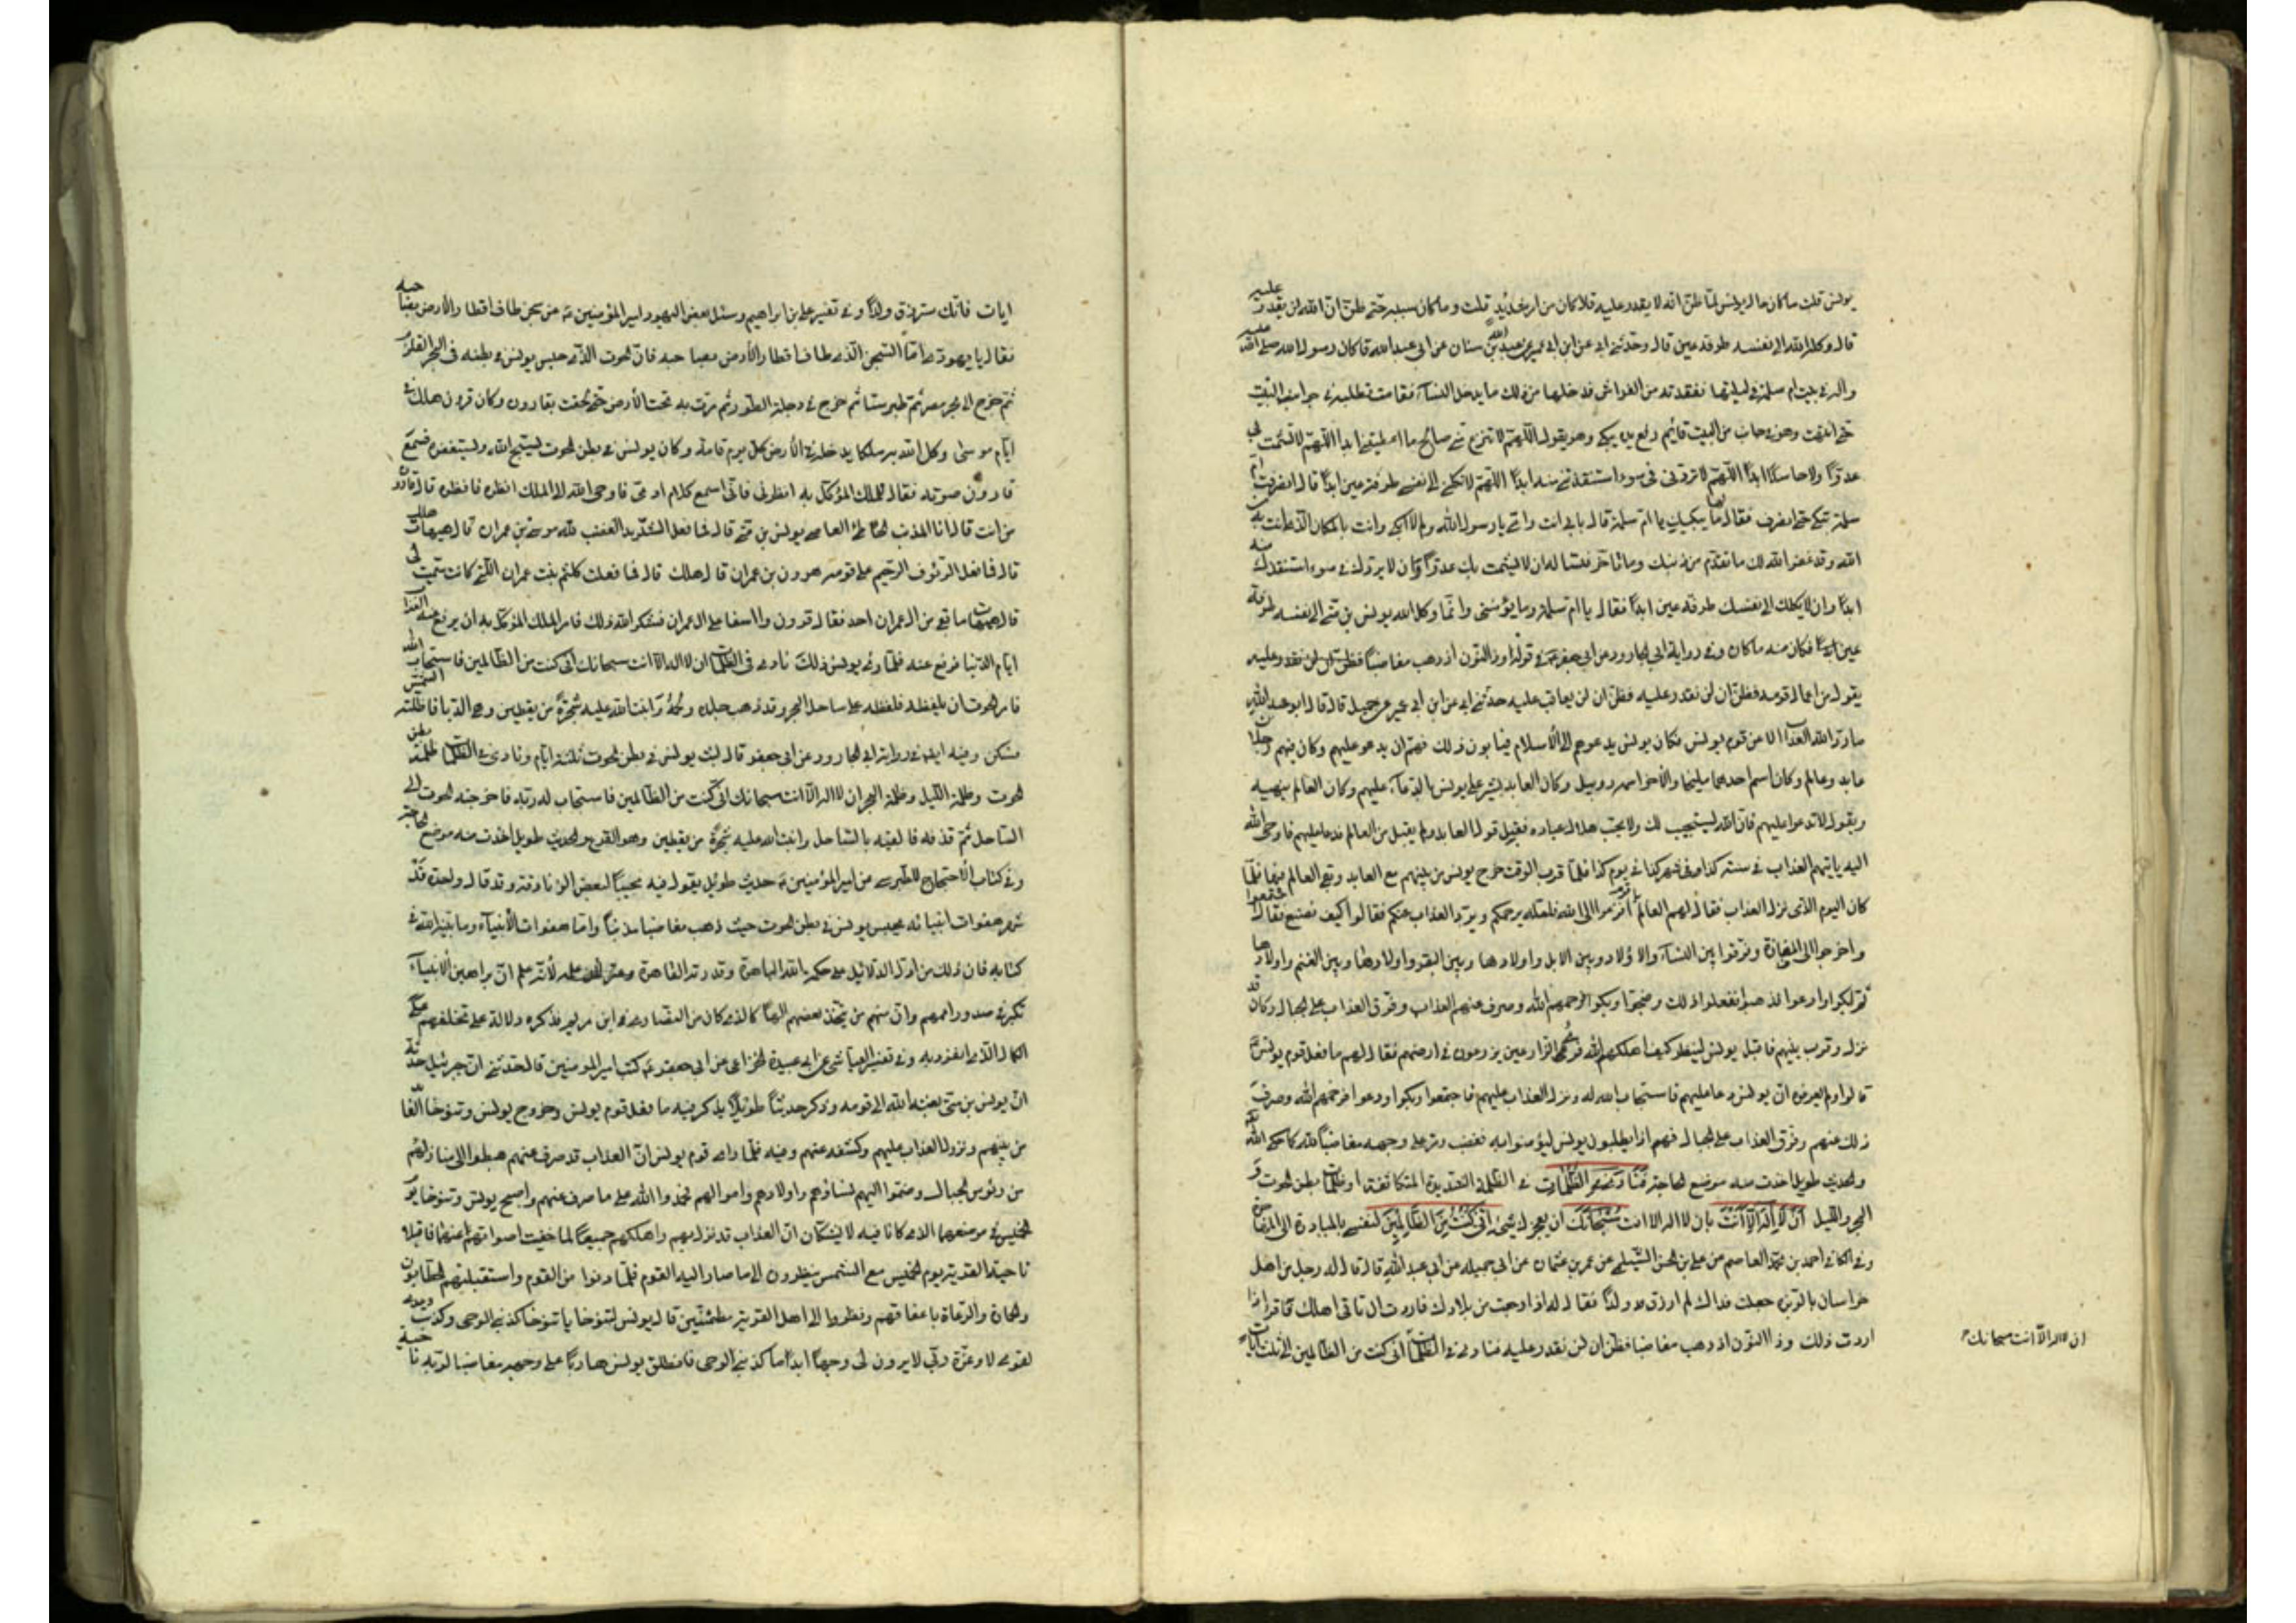 يونس قلت ما كان حال يونس لما ظن ان الله لا يقدر عليه قال كان من امر شديد قلت وما كان سببه حتى ظن ان الله لن يقدر عليه
قال وكله الله الى نفسه طرفة عين قال وحدثني ابي عن ابن ابي عمير عن عبد الله بن سنان عن ابي عبد الله قال كان رسول الله صلى الله عليه
واله في بيت ام سلمة في ليلتها ففقدته من الفراش فدخلها من ذلك ما يدخل النساء فقامت تطلبه في جوانب البيت
حتى انتهت وهو في جانب من البيت قائم رافع يديه يبكي وهو يقول اللهم لا تنزع مني صالح ما اعطيتني ابدا اللهم لا تشمت بي
عدوا ولا حاسدا ابدا اللهم لا تردني في سوء استنقذتني منه ابدا اللهم لا تكلني الى نفسي طرفة عين ابدا قال فانصرفت ام
سلمة تبكي حتى انصرف فقال لها ما يبكيك يا ام سلمة قالت بابي انت وامي يا رسول الله ولم لا ابكي وانت بالمكان الذي انت به من
الله وقد غفر الله لك ما تقدم من ذنبك وما تاخر تسئله ان لا يشمت بك عدوا وان لا يردك في سوء استنقذك منه
ابدا وان لا يكلك الى نفسك طرفة عين ابدا فقال يا ام سلمة وما يؤمنني وانما وكل الله يونس بن متى الى نفسه طرفة
عين ابدا فكان منه ما كان وفي رواية ابي الجارود عن ابي جعفر في قوله وذا النون اذ ذهب مغاضبا فظن ان لن نقدر عليه
يقول من اعمال قومه فظن ان لن نقدر عليه فظن ان لن يعاقب عليه حدثني ابي عن ابن ابي عمير عن جميل قال قال ابو عبد الله
ما رد الله العذاب الا عن قوم يونس فكان يونس يدعوهم الى الاسلام فيابون ذلك فهم ان يدعو عليهم وكان فيهم رجلان
عابد وعالم وكان اسم احدهما مليخا والاخر اسمه روبيل وكان العابد يشير على يونس بالدعاء عليهم وكان العالم ينهيه
ويقول لا تدعو عليهم فان الله يستجيب لك ولا يحب هلاك عباده فقبل قول العابد ولم يقبل من العالم فدعا عليهم فاوحى الله
اليه ياتيهم العذاب في سنة كذا وفي شهر كذا في يوم كذا فلما قرب الوقت خرج يونس من بينهم مع العابد وبقى العالم فيها فلما
كان اليوم الذي نزل العذاب فقال لهم العالم يا قوم افزعوا الى الله فلعله يرحمكم ويرد العذاب عنكم فقالوا كيف نصنع فقال اجتمعوا
واخرجوا الى المفازة وفرقوا بين النساء والاولاد وبين الابل واولادها وبين البقر واولادها وبين الغنم واولادها
ثم ابكوا وادعوا فذهبوا ففعلوا ذلك وضجوا وبكوا فرحمهم الله وصرف عنهم العذاب وفرق العذاب على الجبال وكان قد
نزل وقرب منهم فاقبل يونس لينظر كيف اهلكهم الله فراى الزارعين يزرعون في ارضهم فقال لهم ما فعل قوم يونس
قالوا ولم يعرفوه ان يونس دعا عليهم فاستجاب الله له ونزل العذاب عليهم فاجتمعوا وبكوا ودعوا فرحمهم الله وصرف
ذلك عنهم وفرق العذاب على الجبال فهم اذا يطلبون يونس ليؤمنوا به فغضب ومر على وجهه مغاضبا لله كما حكى الله
والحديث طويل اخذت منه موضع الحاجة فنادى في الظلمات في الظلمة الشديدة المتكاثفة او ظلمات بطن الحوت و
البحر والليل ان لا اله الا انت بان لا اله الا انت سبحانك ان يعجزك شيء اني كنت من الظالمين لنفسي بالمبادرة الى المهاجرة
وفي الكافي احمد بن محمد العاصمي عن علي بن الحسن التيملي عن عمرو بن عثمان عن ابي جميلة عن ابي عبد الله قال قال له رجل من اهل
خراسان بالربذة جعلت فداك لم ارزق ولدا فقال له اذا رجعت من بلادك فاردت ان تاتي اهلك فاقرأ اذا
اردت ذلك وذا النون اذ ذهب مغاضبا فظن ان لن نقدر عليه فنادى في الظلمات اني كنت من الظالمين الى ثلث
ان لا اله الا انت سبحانك
ايات فانك سترزق ولدا وفي تفسير علي بن ابراهيم وسئل بعض اليهود امير المؤمنين عن سجن طاف اقطار الارض بصاحبه
فقال يا يهودي اما السجن الذي طاف اقطار الارض بصاحبه فان الحوت الذي حبس يونس في بطنه فدخل في البحر القلزم
ثم خرج الى بحر مصر ثم طبرستان ثم خرج في دجلة الغور ثم مرت به تحت الارض حتى لحقت بقارون وكان قارون هلك في
ايام موسى وكل الله به ملكا يدخله في الارض كل يوم قامة وكان يونس في بطن الحوت يسبح الله ويستغفره فسمع
قارون صوته فقال للملك الموكل به انظرني فاني اسمع كلام ادمي فاوحى الله الى الملك انظره فانظره قال قارون
من انت قال انا المذنب الخاطئ العاصي يونس بن متى قال فما فعل الشديد الغضب لله موسى بن عمران قال هيهات هلك
قال فما فعل الرؤف الرحيم على قومه هرون بن عمران قال هلك قال فما فعلت كلثم بنت عمران التي كانت سميت لي
قال هيهات ما بقي من ال عمران احد فقال قارون وا اسفا على ال عمران فشكر الله ذلك فامر الملك الموكل به ان يرفع عنه العذاب
ايام الدنيا فرفع عنه فلما رأى يونس ذلك نادى في الظلمات ان لا اله الا انت سبحانك اني كنت من الظالمين فاستجاب الله
فامر الحوت ان يلفظه فلفظه على ساحل البحر وقد ذهب جلده ولحمه وانبت الله عليه شجرة من يقطين وهي الدبا فاظلته الشمس
فسكن وفيه ايضا في رواية ابي الجارود عن ابي جعفر قال لبث يونس في بطن الحوت ثلثة ايام ونادى في الظلمات ظلمة بطن
الحوت وظلمة الليل وظلمة البحر ان لا اله الا انت سبحانك اني كنت من الظالمين فاستجاب له ربه فاخرجه الحوت الى
الساحل ثم قذفه فالقيه بالساحل وانبت الله عليه شجرة من يقطين وهو القرع والحديث طويل اخذت منه موضع الحاجة
وفي كتاب الاحتجاج للطبرسي عن امير المؤمنين حديث طويل يقول فيه مجيبا لبعض الزنادقة وقد قال واجده قد
شهر هفوات انبيائه بحبس يونس في بطن الحوت حيث ذهب مغاضبا مذنبا واما هفوات الانبياء وما بينه الله في
كتابه فان ذلك من ادل الدلائل على حكمة الله الباهرة وقدرته القاهرة وعزته الظاهرة لانه علم ان براهين الانبياء
تكبر في صدور اممهم وان منهم من يتخذ بعضهم الها كالذي كان من النصارى في ابن مريم فذكره دلالة على تخلفهم عن
الكمال الذي انفرد به وفي تفسير العياشي عن ابي عبيدة الحذاء عن ابي جعفر كتب امير المؤمنين قال حدثني ان جبرئيل حدثه
ان يونس بن متى بعثه الله الى قومه وذكر حديثا طويلا يذكر فيه ما فعل قوم يونس وخروج يونس وتنوخا العابد
من بينهم ونزول العذاب عليهم وكشفه عنهم وفيه فلما راى قوم يونس ان العذاب قد صرف عنهم هبطوا الى منازلهم
من رؤس الجبال وضموا اليهم نساءهم واولادهم واموالهم وحمدوا الله على ما صرف عنهم واصبح يونس وتنوخا يوم
الخميس في موضعهما الذي كانا فيه لا يشكان ان العذاب قد نزل بهم واهلكهم جميعا لما خفيت اصواتهم عنهما فاقبلا
ناحية القرية يوم الخميس مع الشمس ينظرون الى ما صار اليه القوم فلما دنوا من القوم واستقبلتهم الحطابون
والحماة والرعاة باغنامهم ونظروا الى اهل القرية مطمئنين قال يونس لتنوخا يا تنوخا كذبني الوحي وكذبت وعدي
لقومي لا وعزة ربي لا يرون لي وجها ابدا ما كذبني الوحي فانطلق يونس هاربا على وجهه مغاضبا لربه ناحية